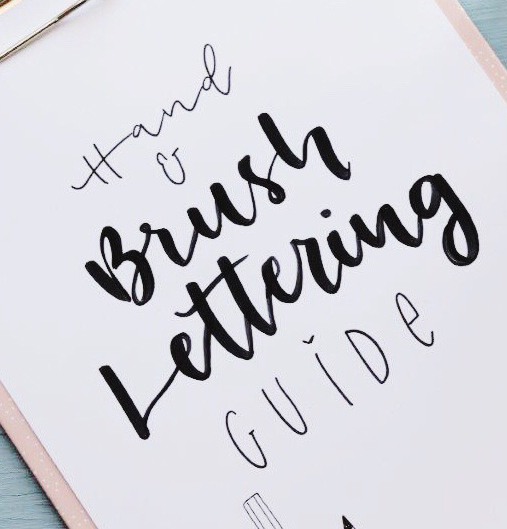 Hand
&
Brush
Lettering
GUiDe